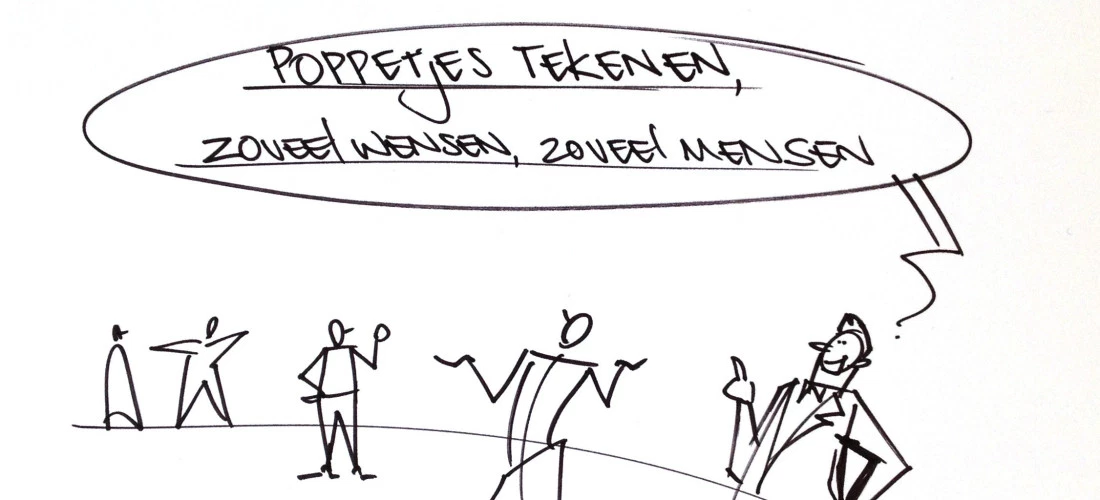 POPPETJES TEKENEN,
ZOVEEL WENSEN, ZOVEEL MENSEN